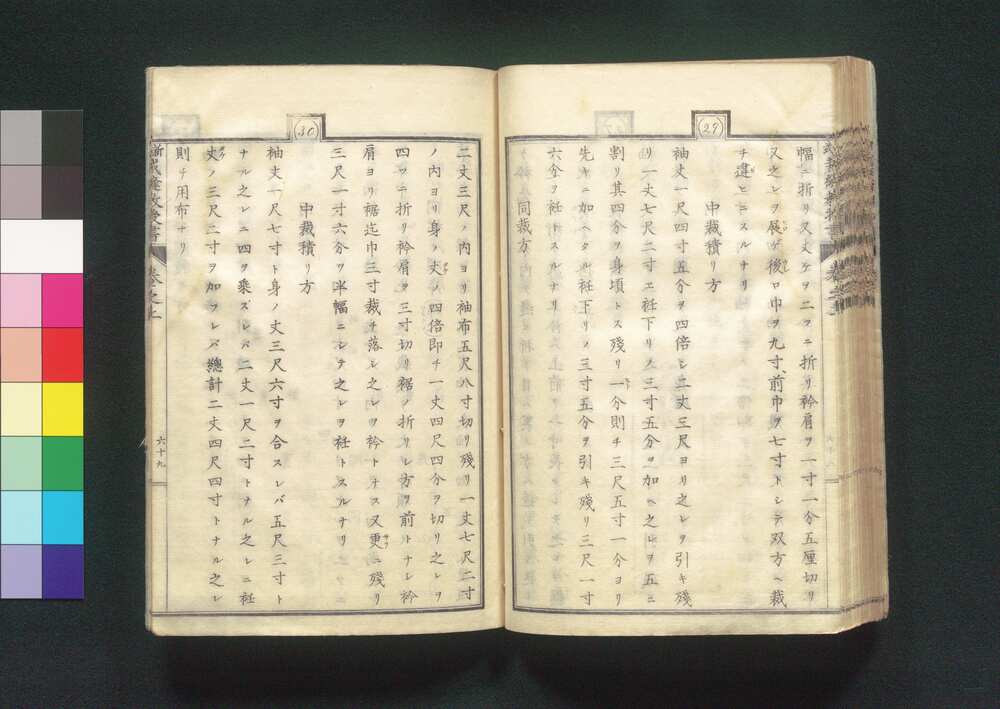 29
幅ニ折リ又丈ケヲ二ツニ折リ衿肩ヲ一寸一分五厘切リ
又之レヲ展ゲ後ロ巾ヲ九寸、前巾ヲ七寸トシテ双方ヘ裁
チ違ヒニスルナリ
中裁積リ方
袖丈一尺四寸五分ヲ四倍シ二丈三尺ヨリ之レヲ引キ殘
リ一丈七尺二寸エ衽下リ三寸五分ヲ加ヘ之レヲ五ニ
割リ其四分ヲ身頃トス殘リ一分則チ三尺五寸一分ヨリ
先キニ加ヘタル衽下リノ三寸五分ヲ引キ殘リ三尺一寸
六分ヲ衽トスルナリ
同裁方
30
二丈三尺ノ内ヨリ袖布五尺八寸切リ殘リ一丈七尺二寸
ノ内ヨリ身ノ丈ノ四倍即チ一丈四尺四分ヲ切リ之レヲ
四ツニ折リ衿肩ヲ三寸切リ裾ノ折リシ方ヲ前トナシ衿
肩ヨリ裾迄巾三寸裁チ落シ之レヲ衿トナス又更ニ殘リ
三尺一寸六分ヲ半幅ニシテ之レヲ衽トスルナリ
中裁積リ方
袖丈一尺七寸ト身ノ丈三尺六寸ヲ合スレバ五尺三寸ト
ナル之レニ四ヲ乘ズレバ二丈一尺二寸トナル之レニ衽
丈ノ三尺二寸ヲ加フレバ總計二丈四尺四寸トナル之レ
則チ用布ナリ
卷之上
六十九